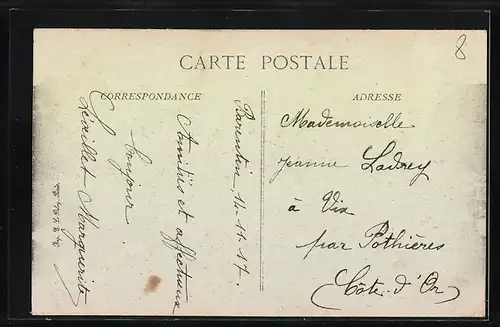 8
CARTE POSTALE
CORRESPONDANCE
ADRESSE
Barentin 11-11-17.
Amitiés et affectueux
bonjour
Marguerite
Mademoiselle
Jeanne Ladrey
à Vix
par Pothières
(Côte-d'Or)